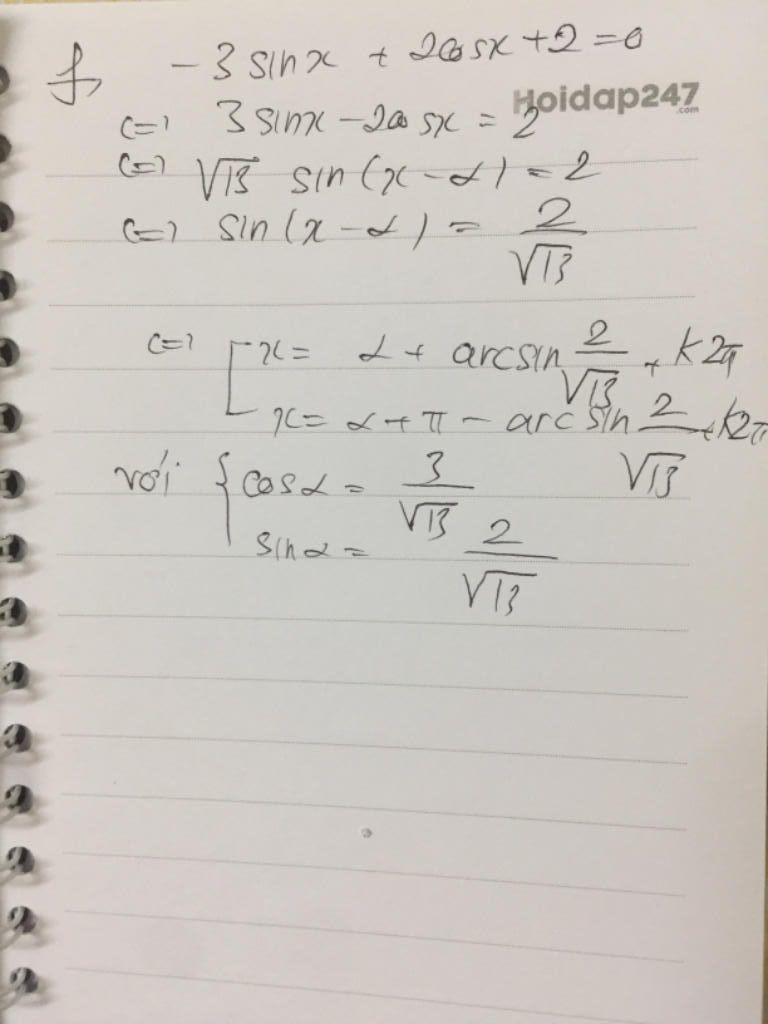 f, -3 sinx + 2cosx + 2 = 0
Hoidap247
.com
<=> 3 sinx - 2cosx = 2
<=> √13 sin(x - α) = 2
<=> sin(x - α) = 2/√13
<=> [ x = α + arcsin 2/√13 + k2π
x = α + π - arcsin 2/√13 + k2π
với { cosα = 3/√13
sinα = 2/√13